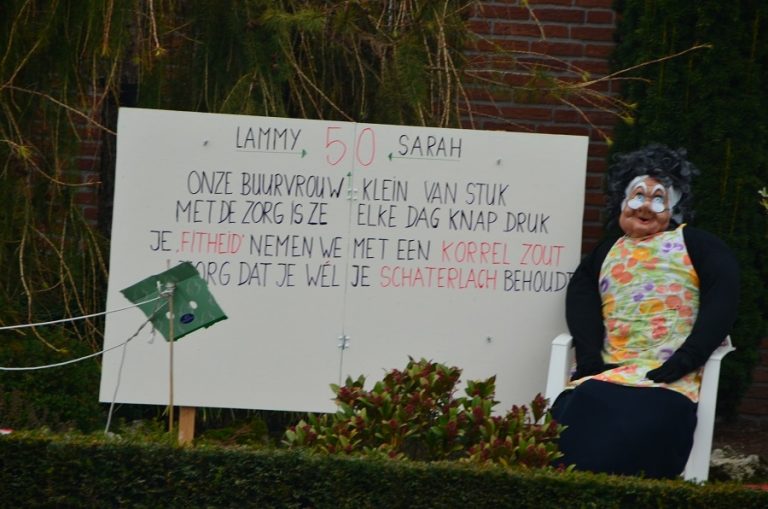 LAMMY 50 SARAH
ONZE BUURVROUW KLEIN VAN STUK
MET DE ZORG IS ZE ELKE DAG KNAP DRUK
JE ,FITHEID' NEMEN WE MET EEN KORREL ZOUT
ZORG DAT JE WÉL JE SCHATERLACH BEHOUDT